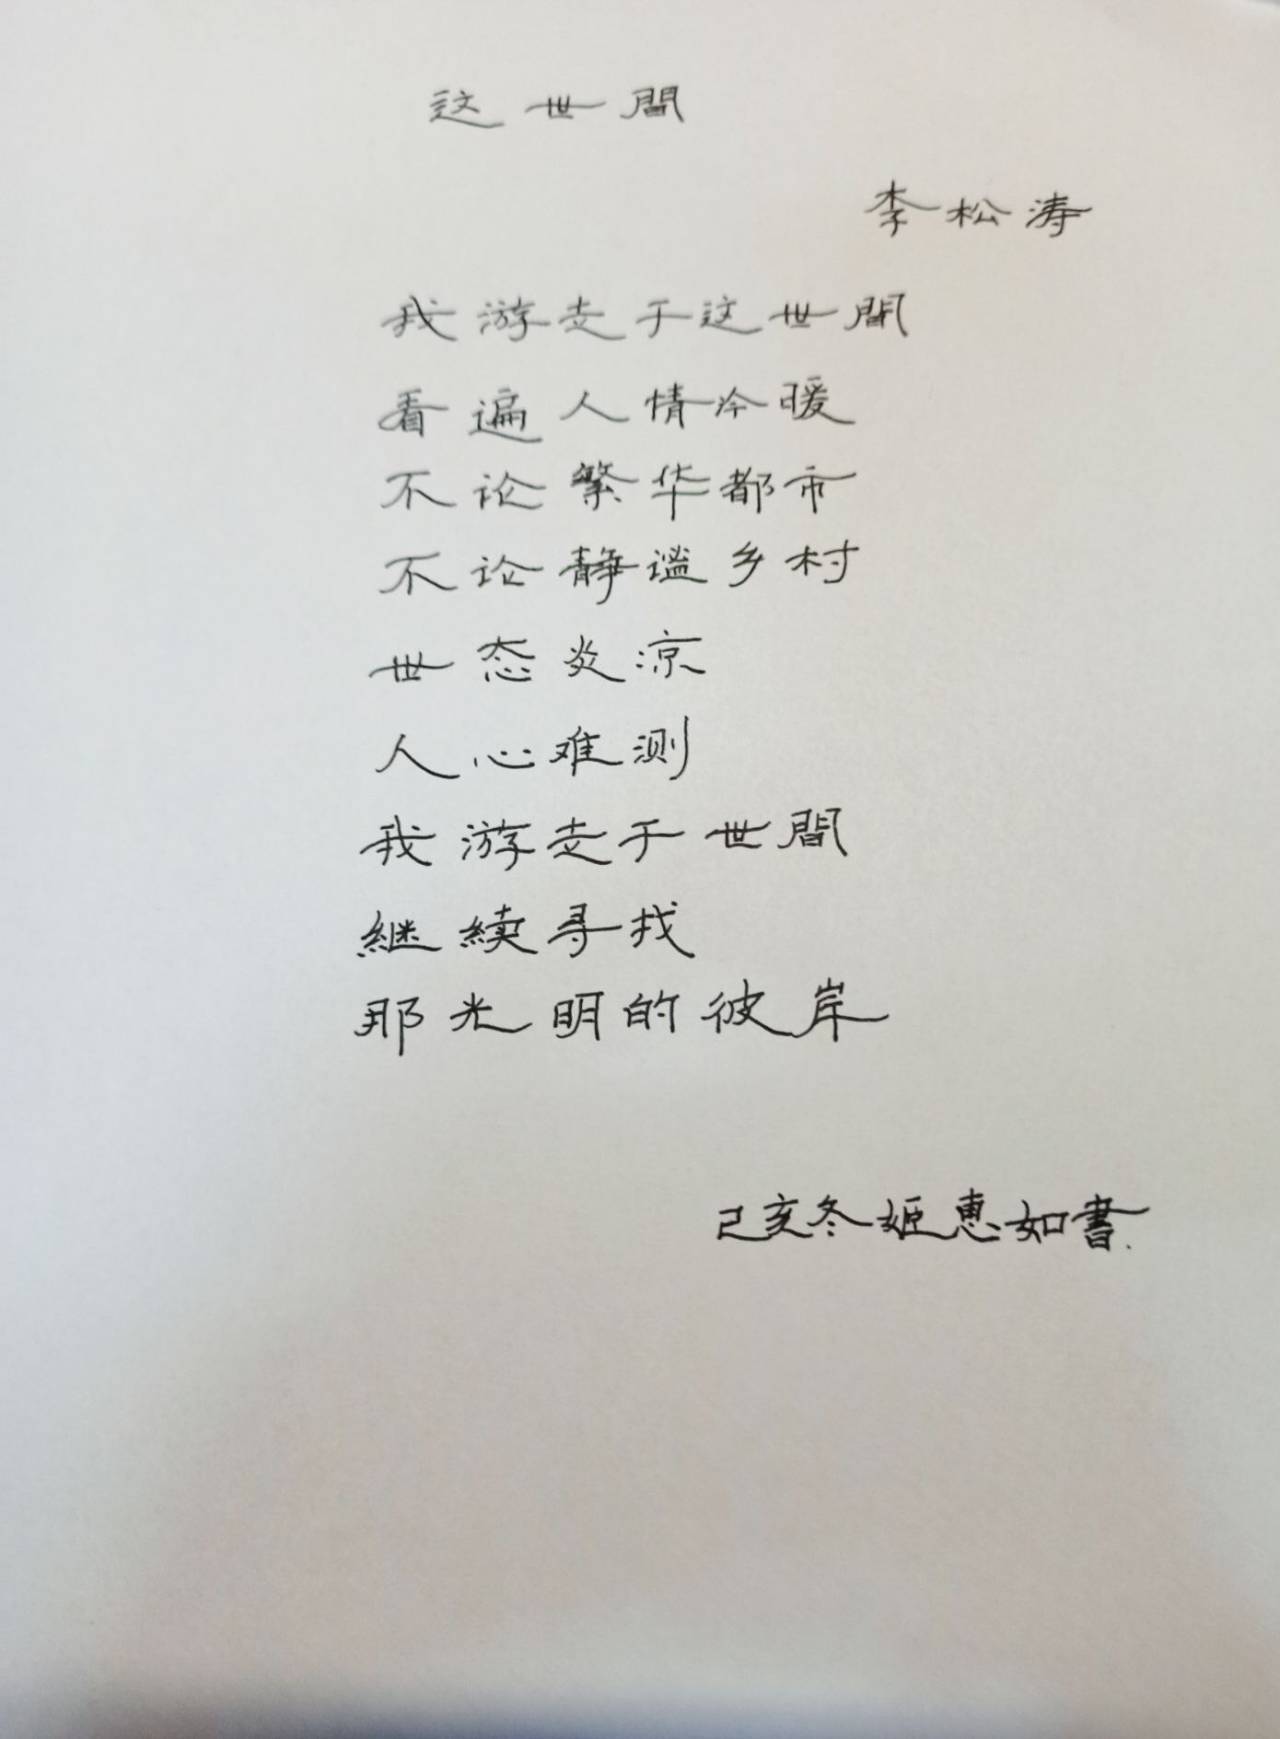 这世間
李松涛
我游走于这世間
看遍人情冷暖
不论繁华都市
不论静谧乡村
世态炎凉
人心难测
我游走于世間
継續寻找
那光明的彼岸
己亥冬姬惠如書